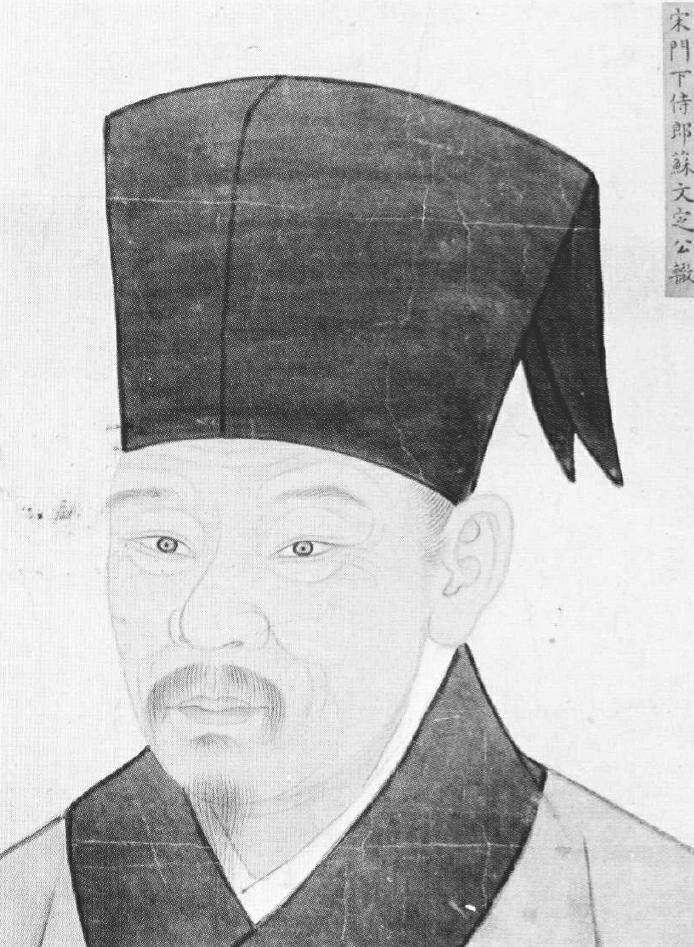 宋門下侍郎蘇文定公轍